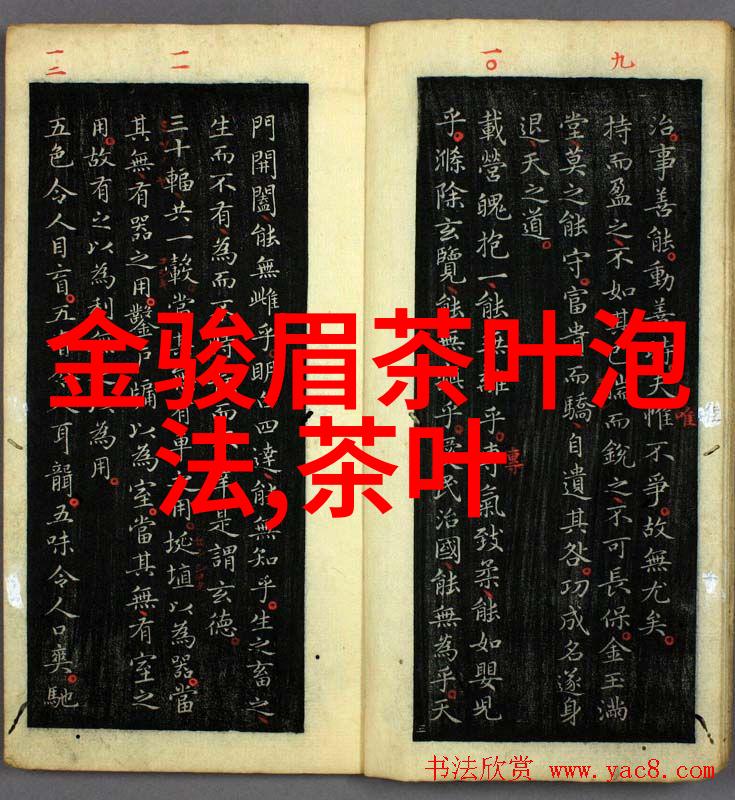 九
一〇
一一
一二
治事善能動善時夫惟不爭故無尤矣
唯
持而盈之不如其揣而銳之不可長保金玉滿
堂莫之能守富貴而驕自遺其咎功成名遂身
退天之道
載營魄抱一能無離乎氣致柔能如嬰兒
專
乎滌除玄覽能無乎民治國能無為乎天
門開闔能無雌乎明白四達能無知乎生之畜之
生而不有為而不恃而不是謂玄德
三十輻共一轂當其有車用埏埴以為器當
其無有器之用鑿戶牖以為室當其無有室之
用故有之以為利以為用
五色令人目盲五音人耳聾五味令人口爽馳
金骏眉茶叶泡
法,茶叶
书法欣赏 www.yac8.com